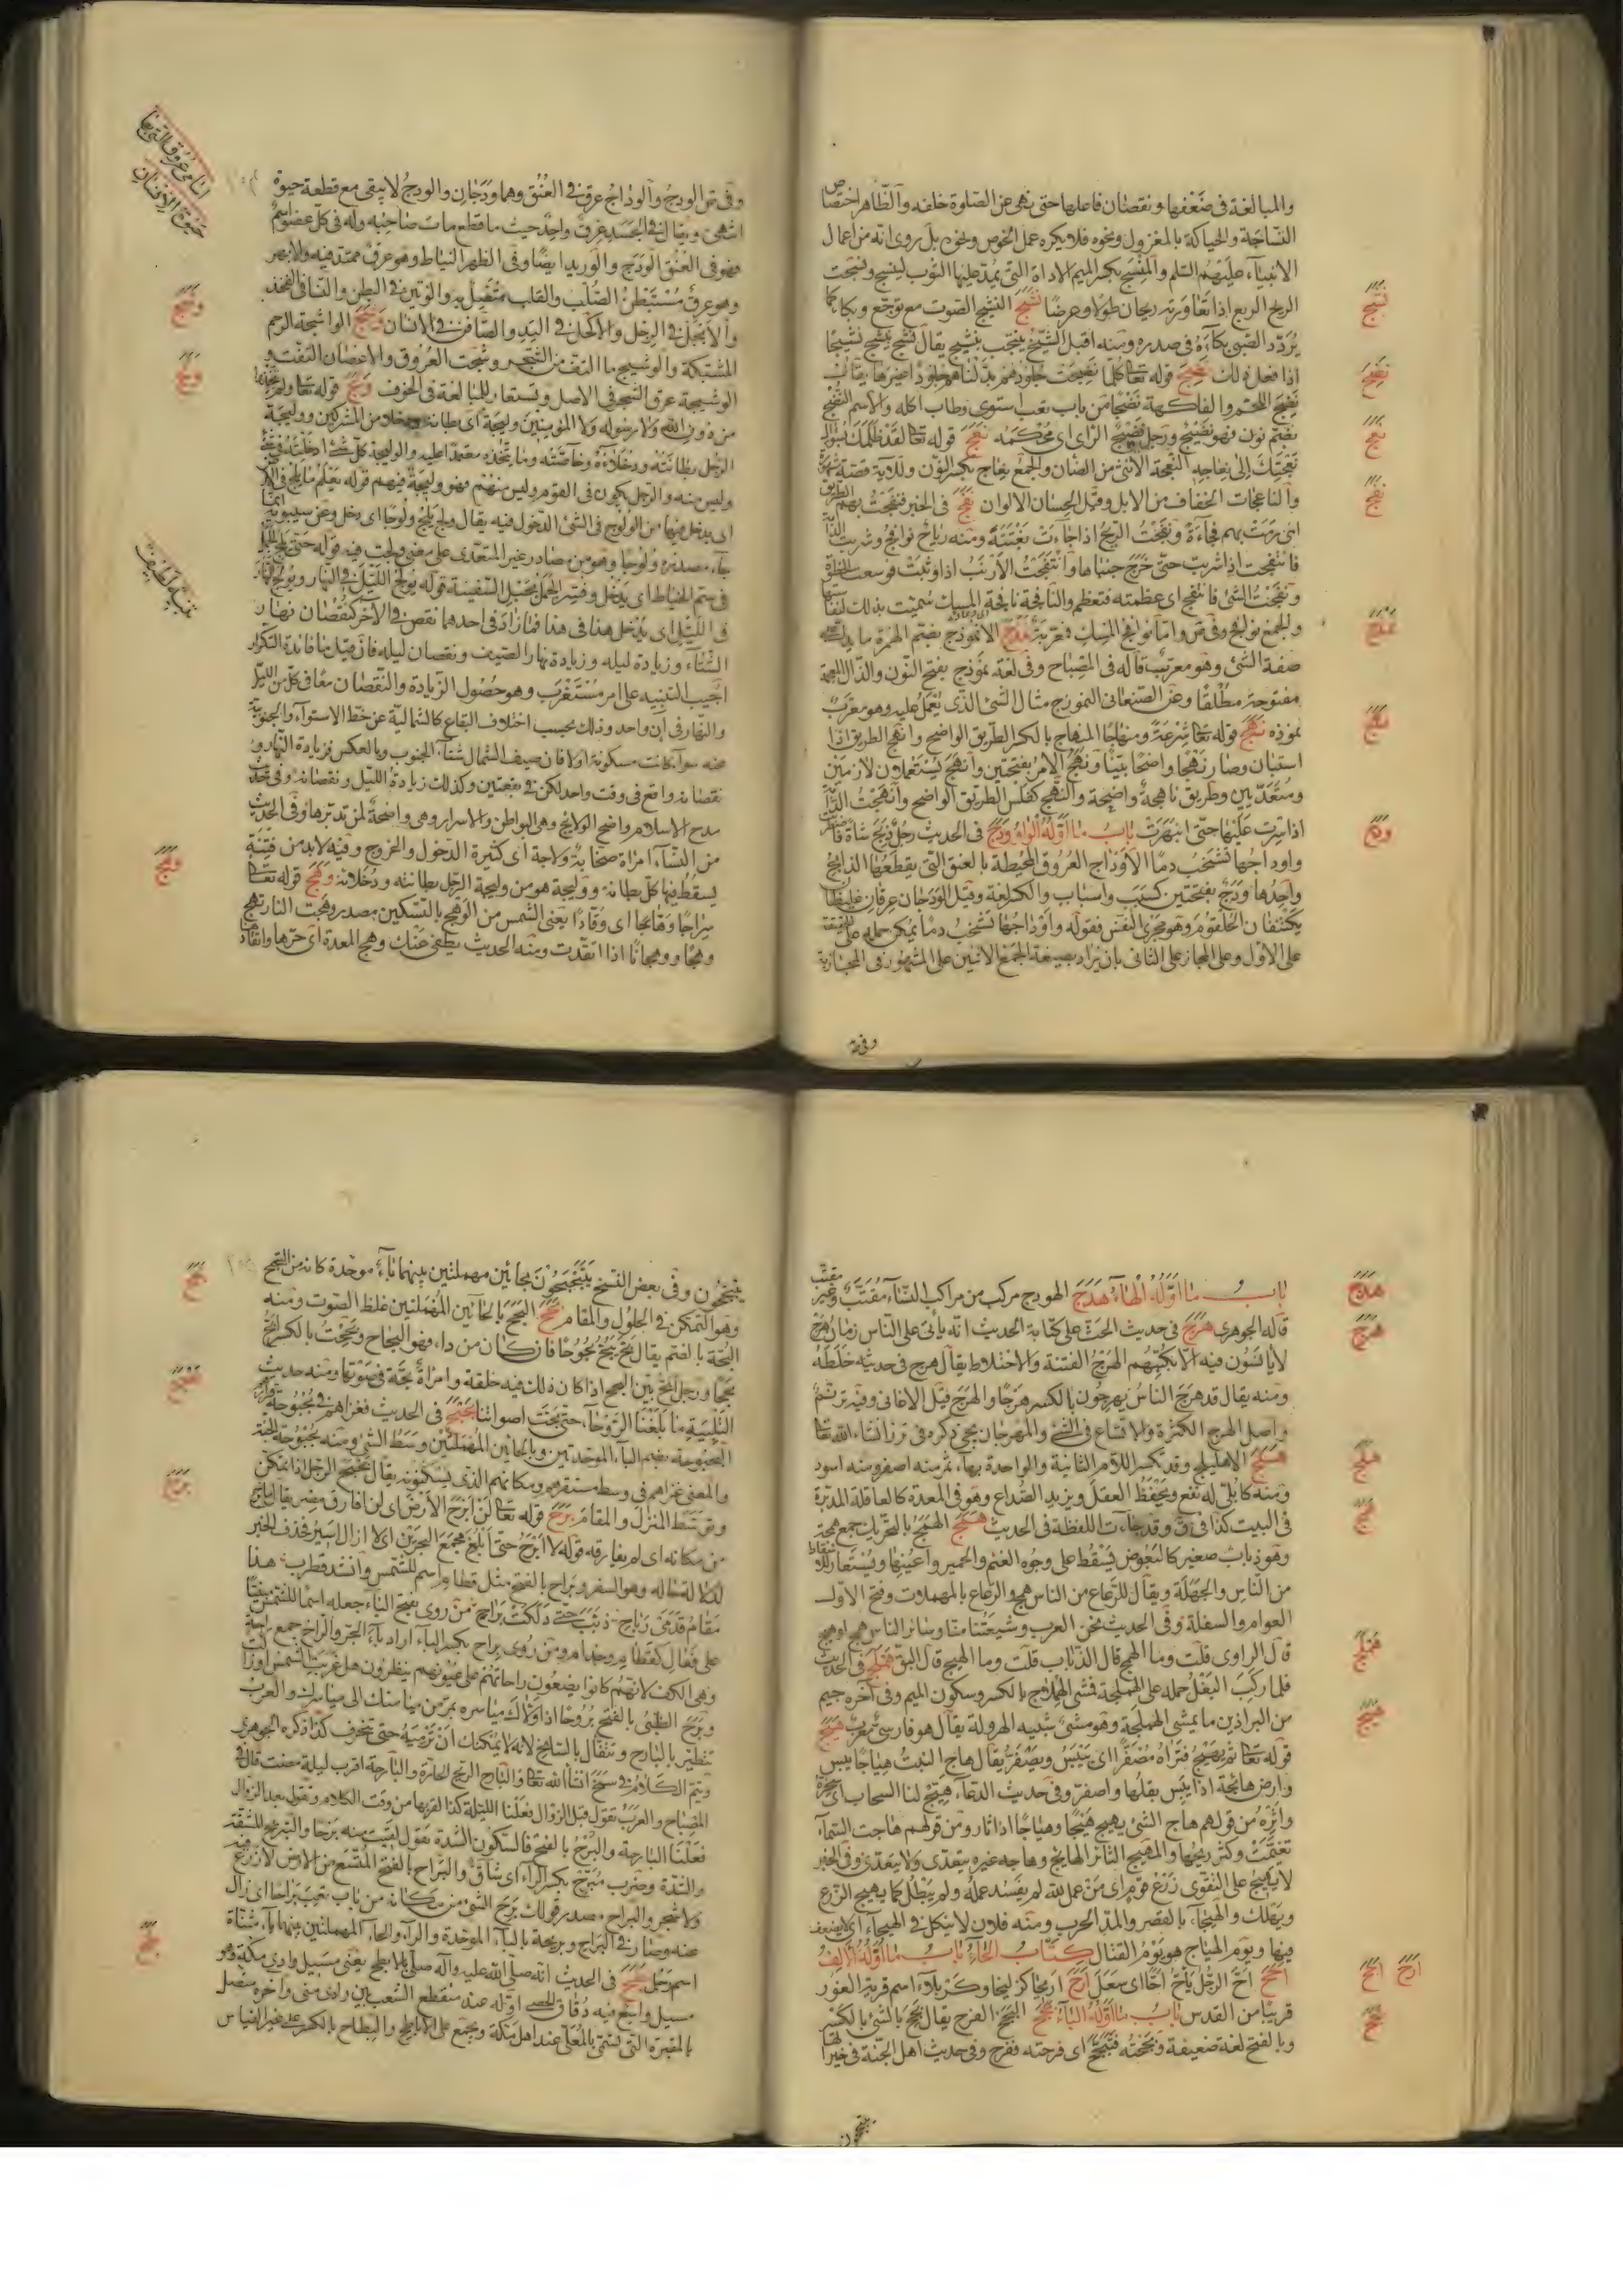 والمبالغة فى ضعفها ونقصان فاعلها حتى نهى عن الصلوة خلفه والظاهر اختصاص
النساجة والحياكة بالمغزول ونحوه فلا يكره عمل الخوص ونحوه بل روى انه من اعمال
الانبيآء عليهم السلم والمنسج بكسر الميم الاداة التى يمد عليها الثوب لينسج ونسجت
الريح الربع اذا تعاورته ريحان طولا وعرضا نشج النشيج الصوت مع توجع وبكاء كما
يردد الصبى بكآءه فى صدره ومنه اقبل الشيخ ينتحب بنشيج يقال نشج ينشج نشيجا
اذا فعل ذلك نضج قوله تعا كلما نضجت جلودهم بدلناهم جلودا غيرها يقال
نضج اللحم والفاكهة نضجا من باب تعب استوى وطاب اكله والاسم النضج
بضم نون فهو نضيج ورجل نضيج الراى اى محكمه نعج قوله تعا لقد ظلمك بسؤال
نعجتك الى نعاجه النعجة الانثى من الضأن والجمع نعاج بكسر النون
والناعجات الخفاف من الابل وقيل الحسان الالوان نفج فى الخبر فنفجت بهم الطريق
اى رمت بهم فجاءة ونفجت الريح اذا جآءت بغتة ومنه رياح نوافج
فانتفجت اذا شربت حتى خرج جنباها وانتفجت الارنب اذا وثبت
ونفجت الشئ فانتفج اى عظمته فتعظم والنافجة نافجة المسك سميت بذلك لنفاستها
والجمع نوافج وفى ص واما نوافج المسك فمعربة نمذج الانموذج بضم الهمزة ما يدل على
صفة الشئ وهو معرب قاله فى المصباح وفى لغة نموذج بفتح النون والذال المعجمة
مفتوحة مطلقا وعن الصنعانى النموذج مثال الشئ الذى يعمل عليه وهو معرب
نموذه نهج قوله تعا شرعة ومنهاجا المنهاج بالكسر الطريق الواضح وانهج الطريق اذا
استبان وصار نهجا واضحا بينا ونهج الامر بفتحتين وانهج يستعملان لازمين
ومتعديين وطريق ناهجة واضحة والنهج كفلس الطريق الواضح وانهجت الدابة
اذا سرت عليها حتى انبهرت باب ما اوله الواو ودج فى الحديث رجل ذبح شاة
واوداجها تشخب دما الاوداج العروق المحيطة بالعنق التى يقطعها الذابح
واحدها ودج بفتحتين كسبب واسباب والكسر لغة وقيل الودجان عرقان غليظان
يكتنفان الحلقوم وهو مجرى النفس فقوله واوداجها تشخب دما يمكن حمله على الحقيقة
على الاول وعلى المجاز على الثانى بان يراد بصيغة الجمع الاثنين على المشهور فى المجازية
وفى ص
وفى ص الودج والوداج عرق فى العنق وهما ودجان والودج لا يبقى مع قطعة حيوة
انتهى ويقال فى الجسد عرق واحد حيث ما قطع مات صاحبه وله فى كل عضو اسم
فهو فى العنق الودج والوريد ايضا وفى الظهر النياط وهو عرق ممتد فيه والابهر
وهو عرق مستبطن الصلب والقلب متصل به والوتين فى البطن والنسا فى الفخذ
والابجل فى الرجل والاكحل فى اليد والصافن فى الانسان وشج الواشجة الرحم
المشتبكة والوشيج ما التف من الشجر وشجت العروق والاغصان التفت
الوشيجة عرق الشجر فى الاصل وتستعار للمبالغة فى الخوف ولج قوله تعا ولم يتخذوا
من دون الله ولا رسوله ولا المؤمنين وليجة اى بطانة ودخلاء من المشركين ووليجة
الرجل بطانته ودخلاؤه وخاصته وما يتخذه معتمدا عليه والوليجة كل شئ ادخلته فى شئ
وليس منه والرجل يكون فى القوم وليس منهم فهو وليجة فيهم قوله يعلم ما يلج فى الارض
اى يدخل فيها من الولوج فى الشئ الدخول فيه يقال ولج يلج ولوجا اى دخل وعن سيبويه انما
جآء مصدره ولوجا وهو من مصادر غير المتعدى على معنى ولجت فيه قوله حتى يلج الجمل
فى سم الخياط اى يدخل وفسر الجمل بحبل السفينة قوله يولج الليل فى النهار ويولج النهار
فى الليل اى يدخل هذا فى هذا فما زاد فى احدهما نقص فى الاخر كنقصان نهار
الشتآء وزيادة ليله وزيادة نهار الصيف ونقصان ليله فان قيل ما فائدة التكرار
اجيب التنبيه على امر مستغرب وهو حصول الزيادة والنقصان معا فى كل من الليل
والنهار فى آن واحد وذلك بحسب اختلاف البقاع كالشمالية عن خط الاستوآء والجنوبية
عنه سوآء كانت مسكونة اولا فان صيف الشمال شتآء الجنوب وبالعكس فزيادة النهار و
نقصانه واقع فى وقت واحد لكن فى بقعتين وكذلك زيادة الليل ونقصانه وفى حديث
مدح الاسلام واضح الولايج وهى البواطن والاسرار وهى واضحة لمن تدبرها وفى الحديث
من النسآء امراة صخابة ولاجة اى كثيرة الدخول والخروج وفيه لا بد من فتنة
يسقط فيها كل بطانة ووليجة هو من وليجة الرجل بطانته ودخلائه وهج قوله تعا
سراجا وهاجا اى وقادا يعنى الشمس من الوهج بالتسكين مصدر وهجت النار تهج
وهجا ووهجانا اذا اتقدت ومنه الحديث يطفى عنك وهج المعدة اى حرها واتقادها
باب ما اوله الهآء هدج الهودج مركب من مراكب النسآء مقتب وغير مقتب
قاله الجوهرى هرج فى حديث الحث على كتابة الحديث انه يأتى على الناس زمان هرج
لا يانسون فيه الا بكتبهم الهرج الفتنة والاختلاط يقال هرج فى حديثه خلطه
ومنه يقال قد هرج الناس يهرجون بالكسر هرجا والهرج قيل الاغانى وفيه ترنم
واصل الهرج الكثرة والاتساع فى الشئ والمهرجان يجئ ذكره فى نرز انشاء الله تعا
هلج الاهليلج وقد تكسر اللام الثانية والواحدة بهاء ثمر منه اصفر ومنه اسود
ومنه كابلى له نفع ويحفظ العقل ويزيد الصداع وهو فى المعدة كالعاقلة المدبرة
فى البيت كذا فى ق وقد جآءت اللفظة فى الحديث همج الهمج بالتحريك جمع همجة
وهو ذباب صغير كالبعوض يسقط على وجوه الغنم والحمير واعينها ويستعار للاسقاط
من الناس والجهلة ويقال للرعاع من الناس همج والرعاع بالمهملات وفتح الاول
العوام والسفلة وفى الحديث نحن العرب وشيعتنا منا وسائر الناس همج او هبج
قال الراوى قلت وما الهمج قال الذباب قلت وما الهبج قال البق هملج فى الحديث
فلما ركب البغل حمله على الهملجة فمشى الهملاج بالكسر وسكون الميم وفى آخره جيم
من البراذين ما يمشى الهملجة وهو مشى شبيه الهرولة يقال هو فارسى معرب هيج
قوله تعا ثم يهيج فتراه مصفرا اى ييبس ويصفر يقال هاج النبت هياجا يبس
وارض هائجة اذا يبس بقلها واصفر وفى حديث الدعآء هيج لنا السحاب اى سخره
واثره من قولهم هاج الشئ يهيج هيجا وهياجا اذا ثار ومن قولهم هاجت السمآء
تغيمت وكثر ريحها والمهيج الثائر الهايج وهاجه غيره يتعدى ولا يتعدى وفى الخبر
لا يهيج على التقوى زرع قوم اى من عمل لله لم يفسد عمله ولم يبطل كما يهيج الزرع
ويهلك والهيجآء بالقصر والمد الحرب ومنه فلان لا ينكل فى الهيجآء اى لا يضعف
فيها ويوم الهياج هو يوم القتال كتاب الحآء باب ما اوله الالف
احح اح الرجل يأح احا اى سعل ارح اريحا كزليخا وكربلآء اسم قرية الغور
قريبا من القدس باب ما اوله البآء بجح البجح الفرح يقال بجح بالشئ بالكسر
وبالفتح لغة ضعيفة وبجحته فتبجح اى فرحته ففرح وفى حديث اهل الجنة فى خيراتها
يتبجحون
يتبجحون وفى بعض النسخ يتبحبحون بحائين مهملتين بينهما بآء موحدة كانه من التبحبح
وهو التمكن فى الحلول والمقام بحح البحح بالحائين المهملتين غلظ الصوت ومنه
البحة بالضم يقال بح يبح بحوحا فان كان من داء فهو البحاح وبححت بالكسر ابح
بححا ورجل ابح بين البحح اذا كان ذلك فيه خلقة وامراة بحة فى صوتها ومنه حديث
التلبية ما بلغنا الروحآء حتى بحت اصواتنا بحبح فى الحديث فغزاهم فى بحبوحة
البحبوحة بضم البآء الموحدتين وبالحائين المهملتين وسط الشئ ومنه بحبوحة الجنة
والمعنى غزاهم فى وسط مستقرهم ومكانهم الذى يسكنونه يقال تبحبح الرجل اذا تمكن
وتوسط المنزل والمقام برح قوله تعا لن ابرح الارض اى لن افارق مصر
من مكانه اى لم يفارقه قوله لا ابرح حتى ابلغ مجمع البحرين اى لا ازال اسير فحذف الخبر
لدلالة حاله وهو السفر وبراح بالفتح مثل قطام اسم للشمس وانشد قطرب هذا
مقام قدمى رباح ذبب حتى دلكت براح من روى بفتح البآء جعله اسما للشمس مبنيا
على فعال كقطام وحذام ومن روى براح بكسر البآء اراد بآء الجر والراح جمع راحة
وهى الكف لانهم كانوا يضعون راحاتهم على عيونهم ينظرون هل غربت الشمس او زالت
وبرح الظبى بالفتح بروحا اذا ولاك مياسره يمر من ميامنك الى مياسرك والعرب
تتطير بالبارح وتتفأل بالسانح لانه لا يمكنك ان ترميه حتى تنحرف كذا ذكره الجوهرى
ويتم الكلام فى سنح انشآ الله تعا والبارح الريح الحارة والبارحة اقرب ليلة مضت قال فى
المصباح والعرب تقول قبل الزوال فعلنا الليلة كذا لقربها من وقت الكلام وتقول بعد الزوال
فعلنا البارحة والبرح بالفتح فالسكون الشدة تقول لقيت منه برحا والتبريح المشقة
والشدة وضرب مبرح بكسر الرآء اى شاق والبراح بالفتح المتسع من الارض لا زرع فيه
ولا شجر والبراح مصدر قولك برح الشئ من مكانه من باب تعب براحا اى زال
عنه وصار فى البراح وبريحة بالبآء الموحدة والرآء والحآء المهملتين بينهما يآء مثناة
اسم رجل بطح فى الحديث انه صلى الله عليه وآله صلى بالابطح يعنى مسيل وادى مكة وهو
مسيل واسع فيه دقاق الحصى اوله عند منقطع الشعب بين وادى منى وآخره متصل
بالمقبرة التى تسمى بالمعلى عند اهل مكة ويجمع على الاباطح والبطاح بالكسر على غير القياس